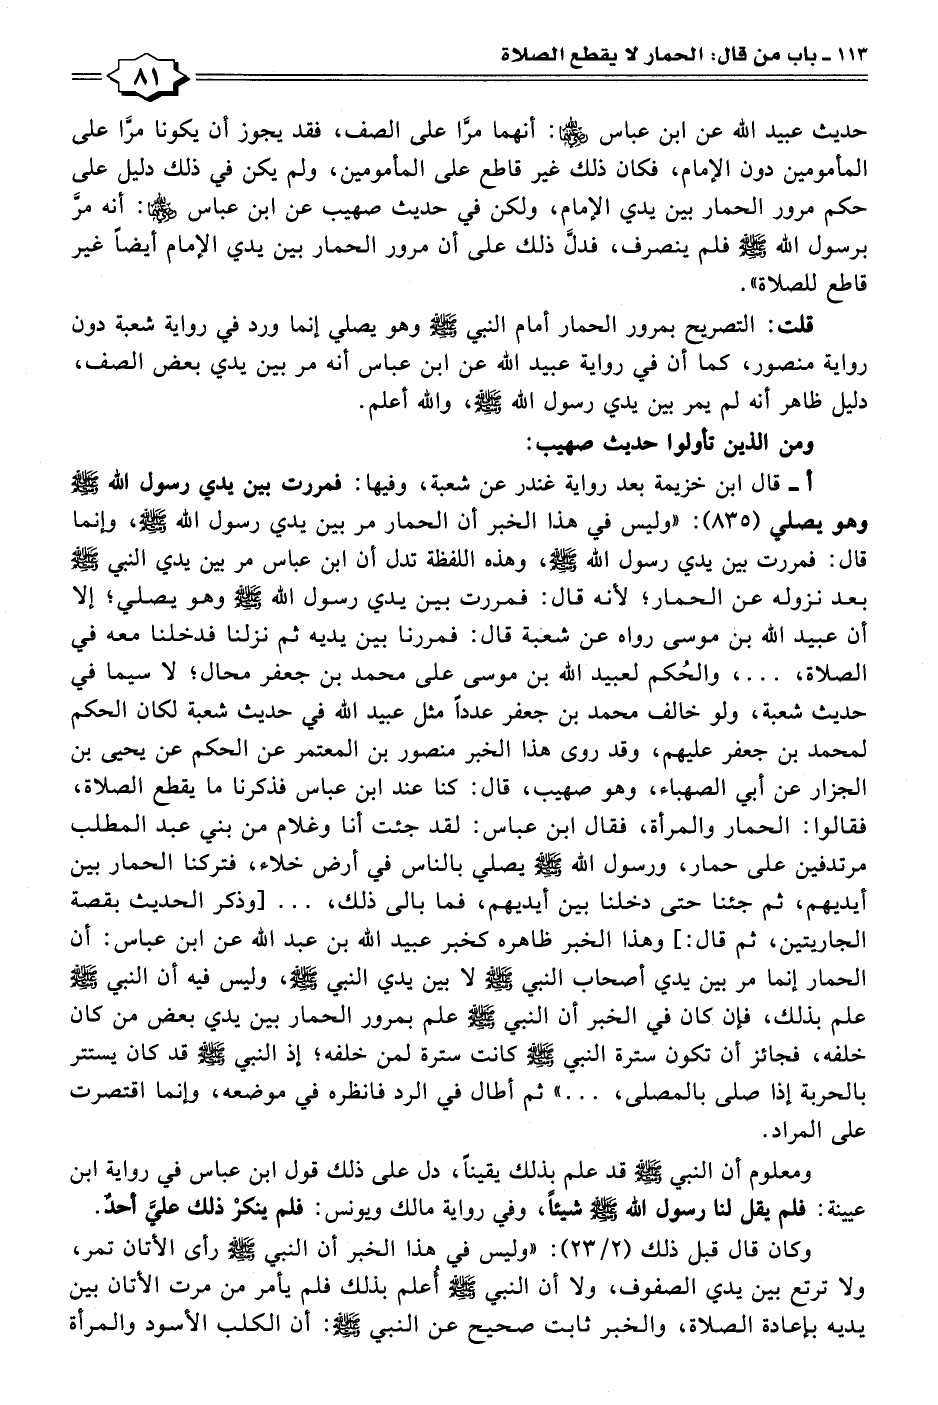 ١١٣ - باب من قال: الحمار لا يقطع الصلاة
٨١
حديث عبيد الله عن ابن عباس ﵄: أنهما مرَّا على الصف، فقد يجوز أن يكونا مرَّا على
المأمومين دون الإمام، فكان ذلك غير قاطع على المأمومين، ولم يكن في ذلك دليل على
حكم مرور الحمار بين يدي الإمام، ولكن في حديث صهيب عن ابن عباس ﵄: أنه مرَّ
برسول الله ﷺ فلم ينصرف، فدلَّ ذلك على أن مرور الحمار بين يدي الإمام أيضاً غير
قاطع للصلاة».
قلت: التصريح بمرور الحمار أمام النبي ﷺ وهو يصلي إنما ورد في رواية شعبة دون
رواية منصور، كما أن في رواية عبيد الله عن ابن عباس أنه مر بين يدي بعض الصف،
دليل ظاهر أنه لم يمر بين يدي رسول الله ﷺ، والله أعلم.
ومن الذين تأولوا حديث صهيب:
أ - قال ابن خزيمة بعد رواية غندر عن شعبة، وفيها: فمررت بين يدي رسول الله ﷺ
وهو يصلي (٨٣٥): «وليس في هذا الخبر أن الحمار مر بين يدي رسول الله ﷺ، وإنما
قال: فمررت بين يدي رسول الله ﷺ، وهذه اللفظة تدل أن ابن عباس مر بين يدي النبي ﷺ
بعد نزوله عن الحمار؛ لأنه قال: فمررت بين يدي رسول الله ﷺ وهو يصلي؛ إلا
أن عبيد الله بن موسى رواه عن شعبة قال: فمررنا بين يديه ثم نزلنا فدخلنا معه في
الصلاة، ...، والحُكم لعبيد الله بن موسى على محمد بن جعفر محال؛ لا سيما في
حديث شعبة، ولو خالف محمد بن جعفر عدداً مثل عبيد الله في حديث شعبة لكان الحكم
لمحمد بن جعفر عليهم، وقد روى هذا الخبر منصور بن المعتمر عن الحكم عن يحيى بن
الجزار عن أبي الصهباء، وهو صهيب، قال: كنا عند ابن عباس فذكرنا ما يقطع الصلاة،
فقالوا: الحمار والمرأة، فقال ابن عباس: لقد جئت أنا وغلام من بني عبد المطلب
مرتدفين على حمار، ورسول الله ﷺ يصلي بالناس في أرض خلاء، فتركنا الحمار بين
أيديهم، ثم جئنا حتى دخلنا بين أيديهم، فما بالى ذلك، ... [وذكر الحديث بقصة
الجاريتين، ثم قال:] وهذا الخبر ظاهره كخبر عبيد الله بن عبد الله عن ابن عباس: أن
الحمار إنما مر بين يدي أصحاب النبي ﷺ لا بين يدي النبي ﷺ، وليس فيه أن النبي ﷺ
علم بذلك، فإن كان في الخبر أن النبي ﷺ علم بمرور الحمار بين يدي بعض من كان
خلفه، فجائز أن تكون سترة النبي ﷺ كانت سترة لمن خلفه؛ إذ النبي ﷺ قد كان يستتر
بالحربة إذا صلى بالمصلى، ...» ثم أطال في الرد فانظره في موضعه، وإنما اقتصرت
على المراد.
ومعلوم أن النبي ﷺ قد علم بذلك يقيناً، دل على ذلك قول ابن عباس في رواية ابن
عيينة: فلم يقل لنا رسول الله ﷺ شيئاً، وفي رواية مالك ويونس: فلم ينكرْ ذلك عليَّ أحدٌ.
وكان قال قبل ذلك (٢٣/٢): «وليس في هذا الخبر أن النبي ﷺ رأى الأتان تمر،
ولا ترتع بين يدي الصفوف، ولا أن النبي ﷺ أُعلم بذلك فلم يأمر من مرت الأتان بين
يديه بإعادة الصلاة، والخبر ثابت صحيح عن النبي ﷺ: أن الكلب الأسود والمرأة